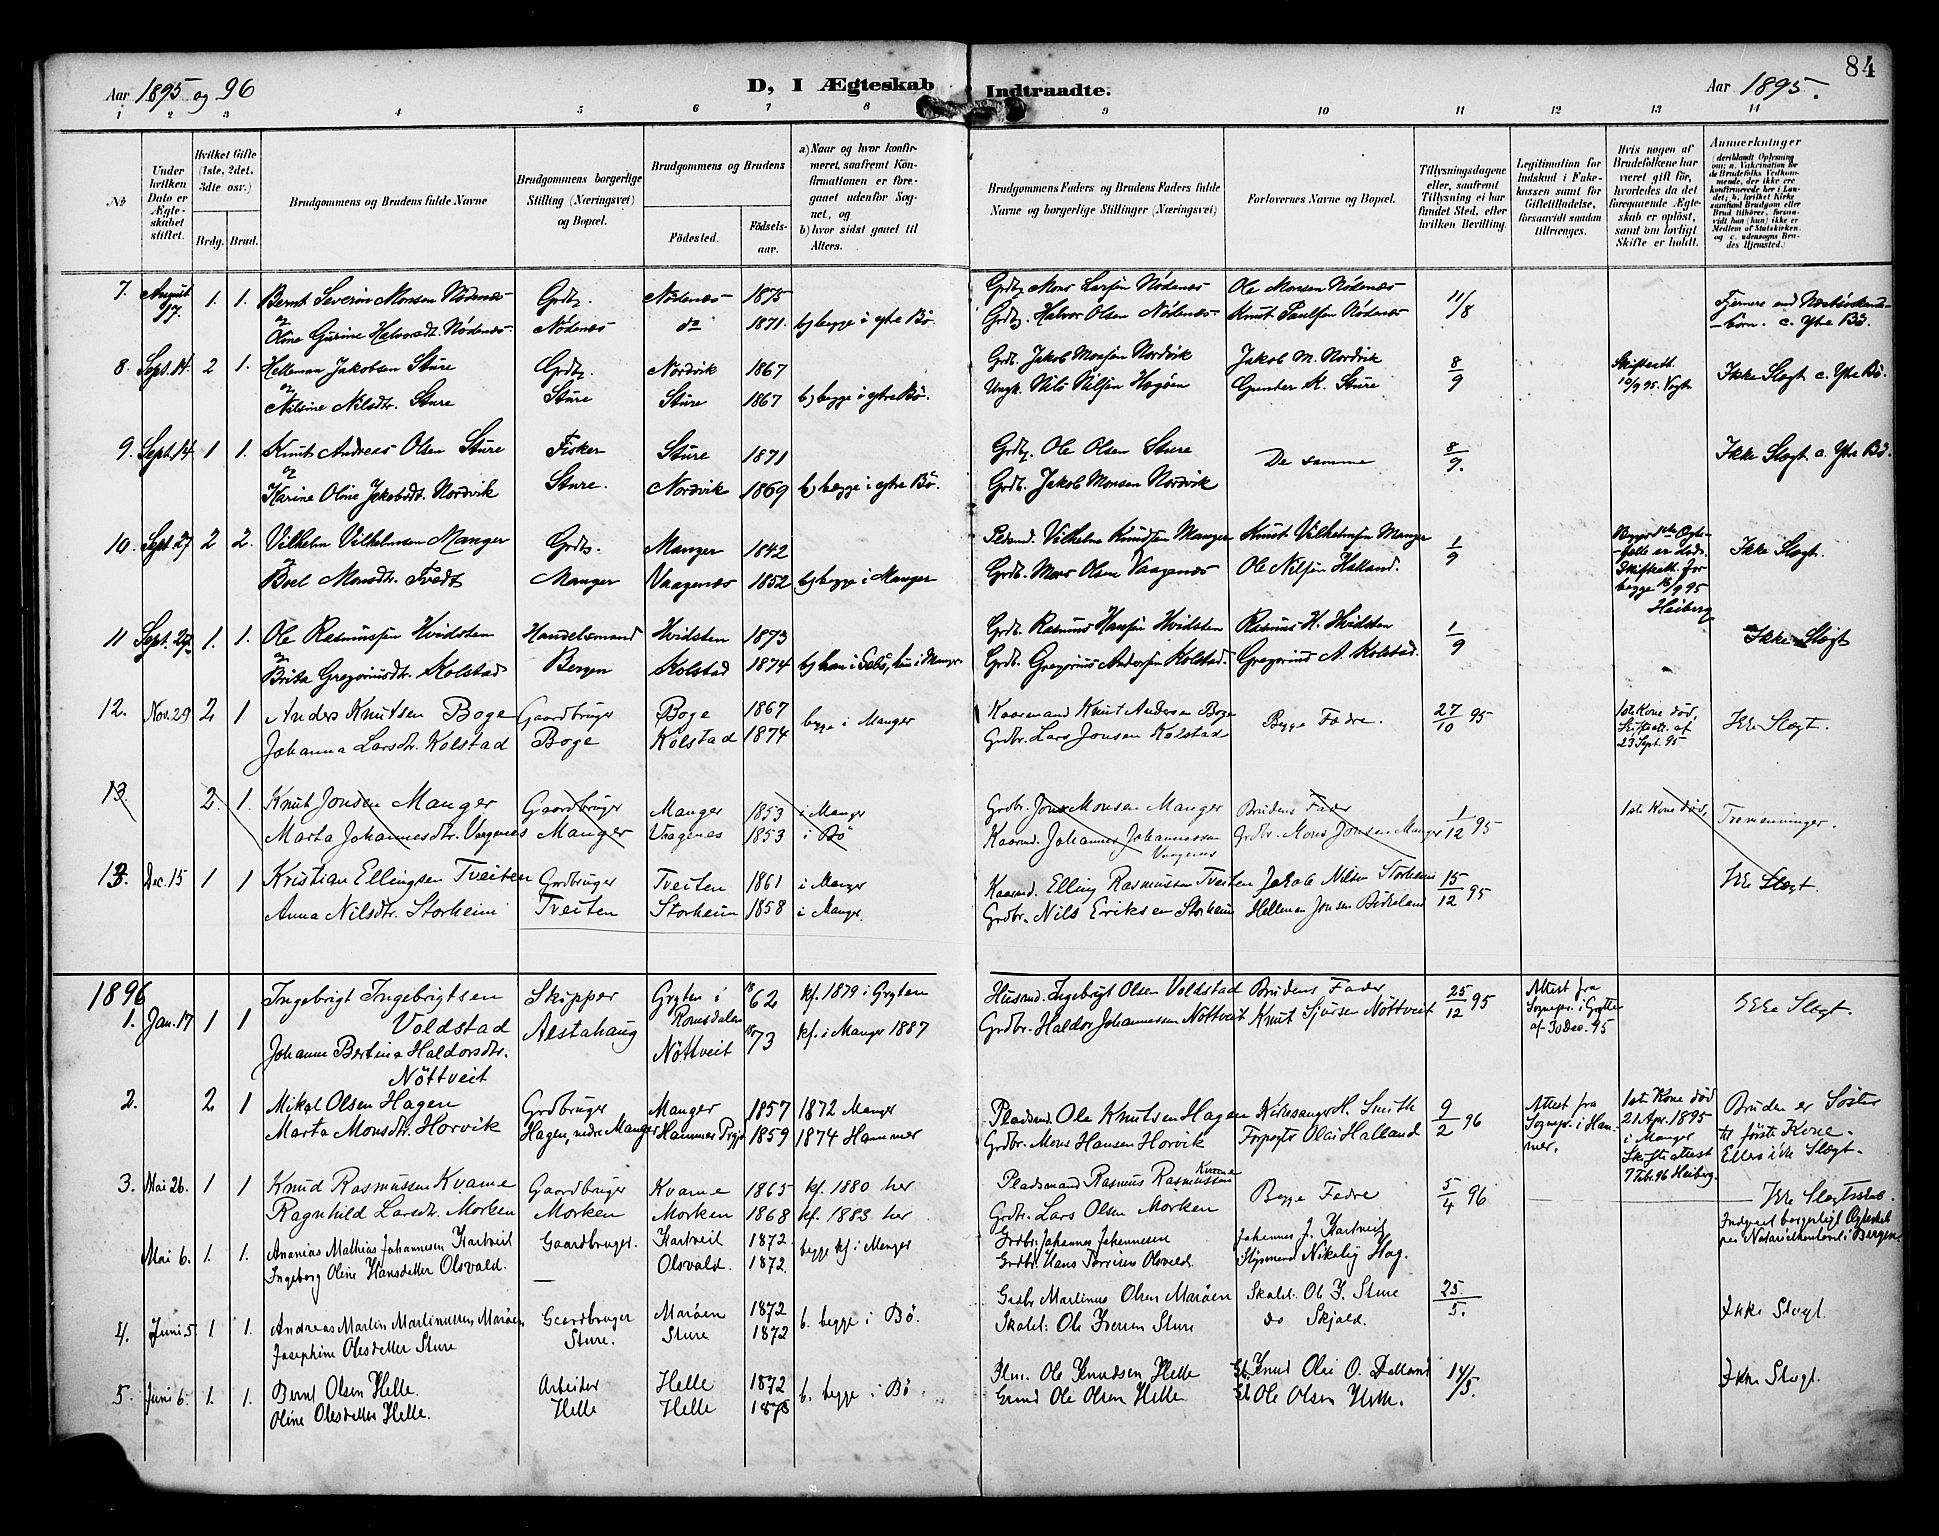 84
Aar 1895 og 96
D, I Ægteskab Indtraadte.
Aar 1895.
1 2 3 4 5 6 7 8 9 10 11 12 13 14
No
Under hvilken Dato er Ægteskabet stiftet.
Hvilket Gifte (1ste, 2det, 3dte osv.)
Brdg. Brud.
Brudgommens og Brudens fulde Navne
Brudgommens borgerlige Stilling (Næringsvei) og Bopæl.
Brudgommens og Brudens
Fødested. Fødselsaar.
a) Naar og hvor konfirmeret, saafremt Konfirmationen er foregaaet udenfor Sognet, og
b) hvor sidst gaaet til Alters.
Brudgommens Faders og Brudens Faders fulde Navne og borgerlige Stillinger (Næringsvei)
Forlovernes Navne og Bopæl.
Tillysningsdagene eller, saafremt Tillysning ei har fundet Sted, efter hvilken Bevilling.
Legitimation for Indskud i Enkekassen samt for Giftetilladelse, forsaavidt saadan tiltrænges.
Hvis nogen af Brudefolkene har været gift før, hvordes da det foregaaende Ægteskab er opløst, samt om lovligt Skifte er holdt.
Anmærkninger
7. August 27. 1. 1. Bernt Severin Monsen Nødenæs Grdbr. Nødenæs 1875 Grdbr. Mons Larsen Nødenæs Ole Monsen Nødenæs 11/8 Fjernere end Næstsødskende-
og Oline Gurine Halvorsdt. Nødenæs Nødenæs do 1871. b) begge i ytre Bø. Grdbr. Halvor Olsen Nødenæs Knut Paulsen Nødenæs -børn. c. Ytre Bø.
8. Sept. 14. 2 1. Helleman Jakobsen Sture Grdbr. Nordvik 1867 Grdb. Jakob Monsen Nordvik Jakob M. Nordvik 8/9 Skifteatt. 10/9 95. Vogt Ikke Slægt c. Ytre Bø.
og Nilsine Nilsdtr. Sture Sture Sture 1867 b) begge i ytre Bø. Ungk. Nils Nilsen Hagøen Gunder K. Sture
9. Sept. 14 1 1. Knut Andreas Olsen Sture Fisker Sture 1871 Grdbr. Ole Olsen Sture De samme 8/9. Ikke Slægt c. Ytre Bø.
og Karine Oline Jakobsdt. Nordvik Sture. Nordvik 1869 b) begge i ytre Bø. Grdb. Jakob Monsen Nordvik
10. Sept. 27 2 2. Vilhelm Vilhelmsen Manger Grdb. Manger 1842 Vilhelm Knudsen Manger Knut Vilhelmsen Manger 1/9 Ikke Slægt.
og Boel Monsdtr. Tvedt Manger Vaagenæs 1852 b) begge i Manger Grdb. Mons Olsen Vaagenæs Ole Nilsen Halland. Skifteatt. for begge 16/9 95 Heiberg
11 Sept. 27. 1. 1. Ole Rasmussen Hvidsten Handelsmand Hvidsten 1873 Grdb. Rasmus Hansen Hvidsten Rasmus H. Hvidsten 1/9 Ikke Slægt
og Brita Gregoriusdtr. Kolstad Bergen Kolstad 1874 b) han i Sæbø, hun i Manger. Grdb. Gregorius Andersen Kolstad. Gregorius A. Kolstad.
12. Nov. 29 2 1 Anders Knutsen Boge Gaardbruger Boge 1867 begge i Manger Kaarmand Knut Andersen Boge Begge Fædre. 27/10 95 1ste Kone død, Skifteatt. af 23 Sept. 95 Ikke Slægt.
Johanna Larsdtr. Kolstad Boge Kolstad 1874 Grdbr. Lars Jonsen Kolstad
13. 2. 1. Knut Jonsen Manger Gaardbruger Manger 1853 i Manger Grdbr. Jon Monsen Manger Brudens Fader 1/12 95 1ste Kone død, Tremenninger.
Marta Johannesdtr. Vaagenes Manger Vaagenes 1853 i Bø Kaarmd. Johannes Johannessen Vaagenes Grdbr. Mons Jonsen Manger
13. Dec. 15 1 1 Kristian Ellingsen Tveiten Grdbruger Tveiten 1861 i Manger Kaarmd. Elling Rasmussen Tveiten Jakob Nilsen Storheim 15/12 95 Ikke Slægt.
Anna Nilsdtr. Storheim Tveiten Storheim 1858 i Manger. Grdbr. Nils Eriksen Storheim Helleman Jonsen Birkeland
1896
1. Jan. 17 1 1 Ingebrigt Ingebrigtsen Voldstad Skipper Gryten i Romsdalen 1862 kf. 1879 i Gryten Husmd. Ingebrigt Olsen Voldstad Brudens Fader 25/12 95 Attest fra Sognepr. i Grytten af 30 Dec. 95 Ikke Slægt.
Johanne Bertine Haldorsdtr. Nöttveit Alstahaug Nöttveit 1873 kf. i Manger 1887 Grdbr. Haldor Johannessen Nöttveit Knut Sjursen Nöttveit
2. 2 1 Mikal Olsen Hagen Grdbruger Manger 1857 1872 Manger Pladsmd. Ole Knutsen Hagen Kirkesanger H. Smith 9/2 96 Attest fra Sognepr. i Hammer. 1ste Kone død 21 Apr. 1895 i Manger Skifteattest 7 Febr. 96 Heiberg. Bruden er Søster til første Kone. Ellers ikke Slægt.
Marta Monsdtr. Horvik Hagen, nedre Manger Hammer Prgj. 1859 1874 Hammer Grdbr. Mons Hansen Horvik Olai Halland
3. Mai 26. 1 1 Knud Rasmussen Kvame Gaardbruger Kvame 1865 kf. 1880 her Pladsmand Rasmus Rasmussen Kvame Begge Fædre 5/4 96 Ikke Slægtsskab.
Ragnhild Larsdtr. Morken Morken Morken 1868 kf. 1883 her Grdbr. Lars Olsen Morken
Mai 6. 1. 1. Ananias Mathias Johannesen Hartveit Gaardbruger. Hartveit 1872. begge kf. i Manger Grdbr. Johannes Johannesen Johannes J. Hartveit Indgaaet borgerligt Ægteskab
Ingeborg Oline Hansdatter Olsvald. — Olsvald. 1872. Nikolaj Hag. Bergen.
4. Juni 5 1 1. Andreas Martin Martinussen Marøen Gaardbruger Marøen 1872 b. begge i Bø. Grdbr Martinus Olsen Marøen Ole I. Sture 25./5. Ikke Slægt.
Josephine Olesdatter Sture Sture. Sture 1872 Ole Iversen Sture do Skjold.
5. Juni 6. 1. 1. Bernt Olsen Helle. Arbeider Helle 1872 b. begge i Bø. Ole Knudsen Helle Knud Olai O. Dalland 14/5. Ikke Slægt.
Oline Olesdatter Helle. Helle Helle 1875 Ole Olsen Helle Ole Olsen Helle.